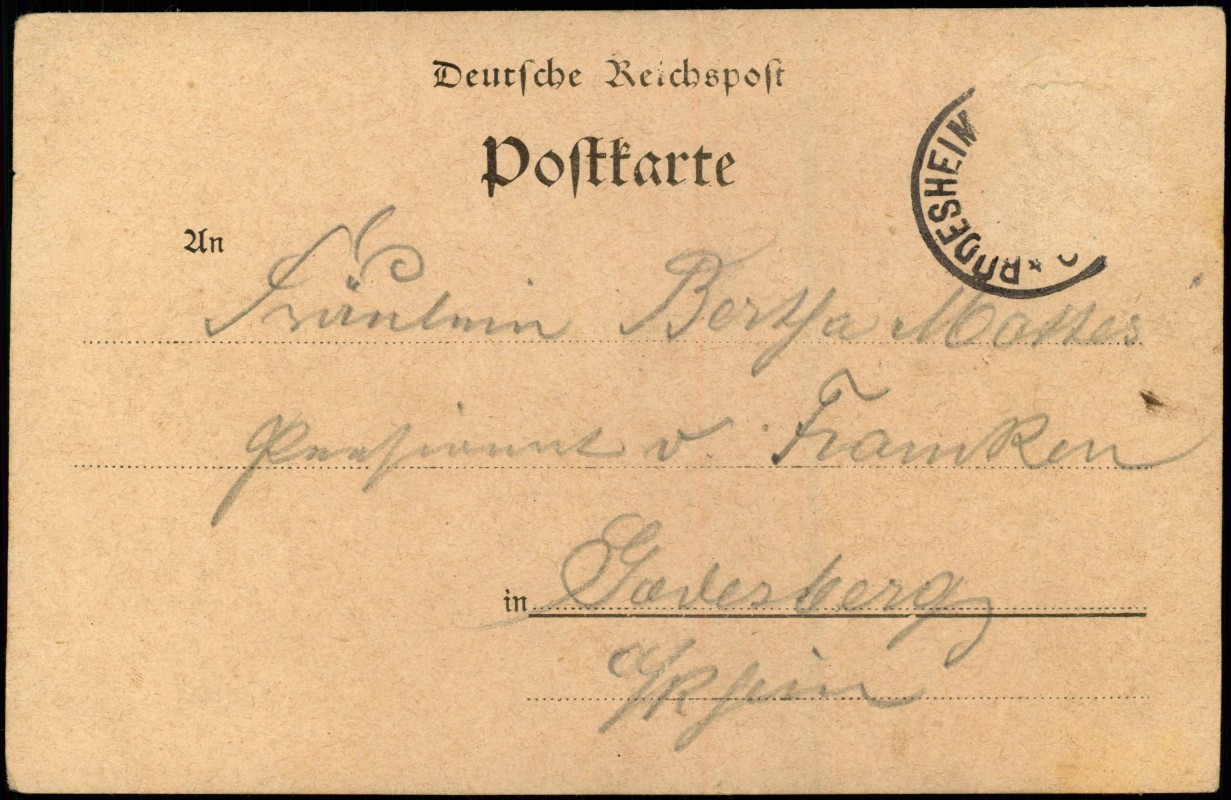 Deutsche Reichspost
Postkarte
RÜDESHEIM
An Fräulein Bertha Mathes
Pensionat v. Franken
in Godesberg
a/Rhein